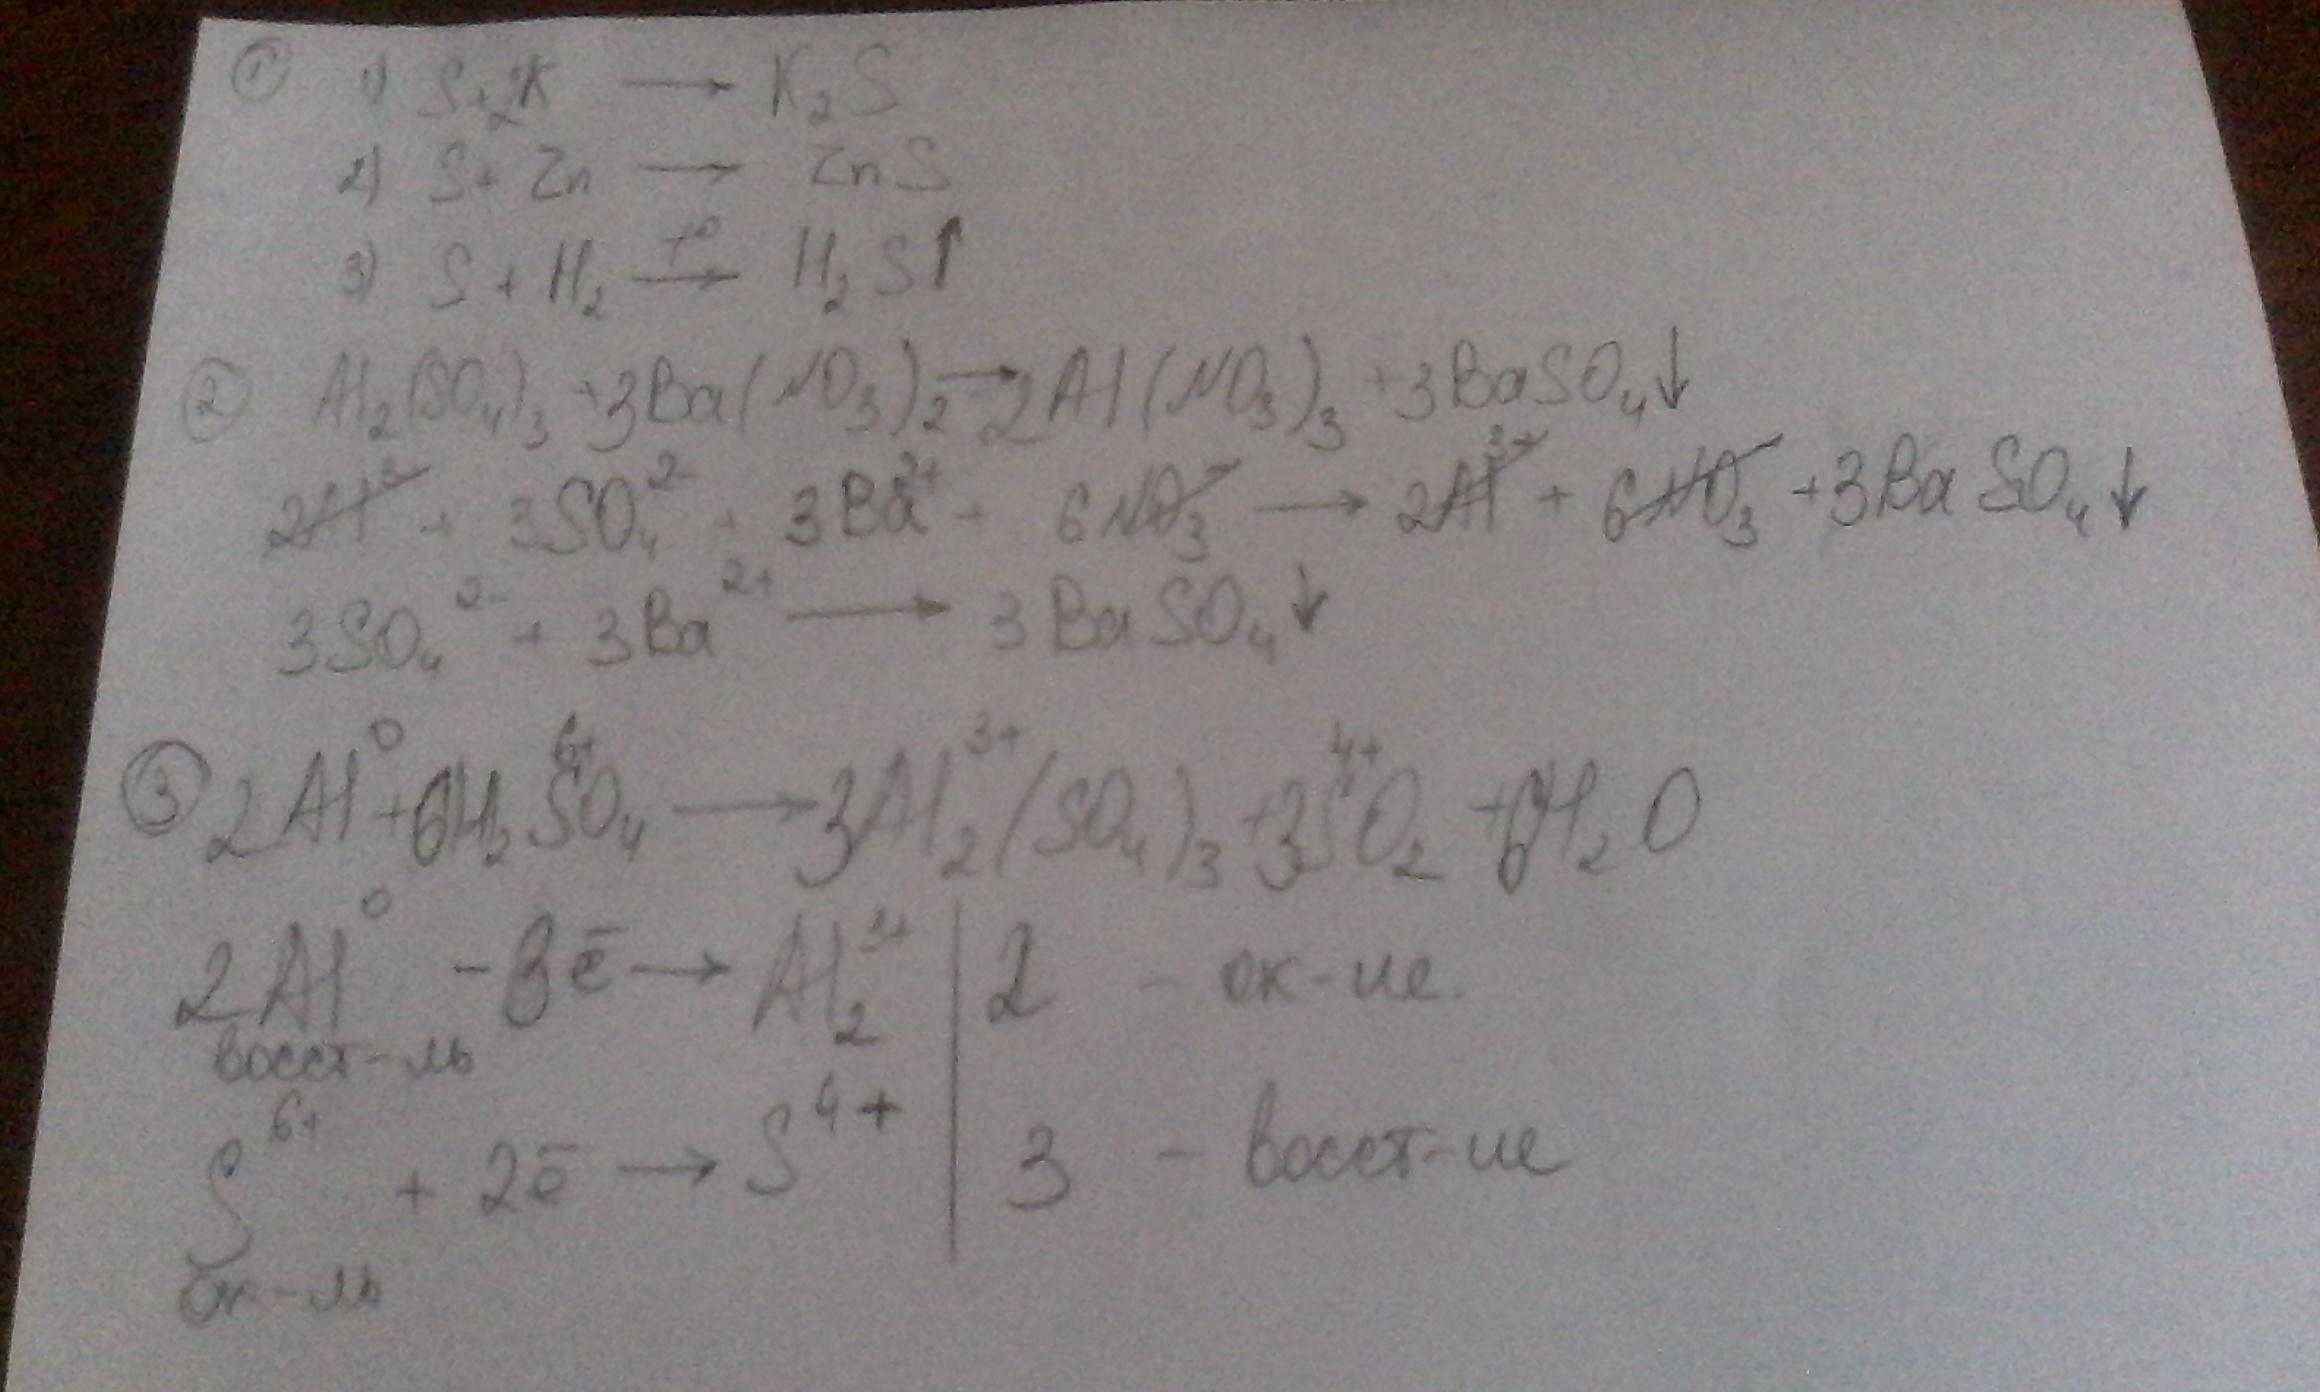 ① 1) S+2K → K₂S
2) S+Zn → ZnS
3) S + H₂ →(t°) H₂S↑
② Al₂(SO₄)₃ +3Ba(NO₃)₂ → 2Al(NO₃)₃ +3BaSO₄↓
2Al³ + 3SO₄²⁻ + 3Ba²⁺ + 6NO₃⁻ → 2Al³⁺ + 6NO₃⁻ +3BaSO₄↓
3SO₄²⁻ + 3Ba²⁺ → 3BaSO₄↓
③ 2Al⁰+6H₂S⁶⁺O₄ → 3Al₂³⁺(SO₄)₃ +3S⁴⁺O₂ +6H₂O
2Al⁰ - 3ē → Al₂³⁺ | 2 - ок-ие.
восст-ль
S⁶⁺ + 2ē → S⁴⁺ | 3 - восст-ие
ок-ль